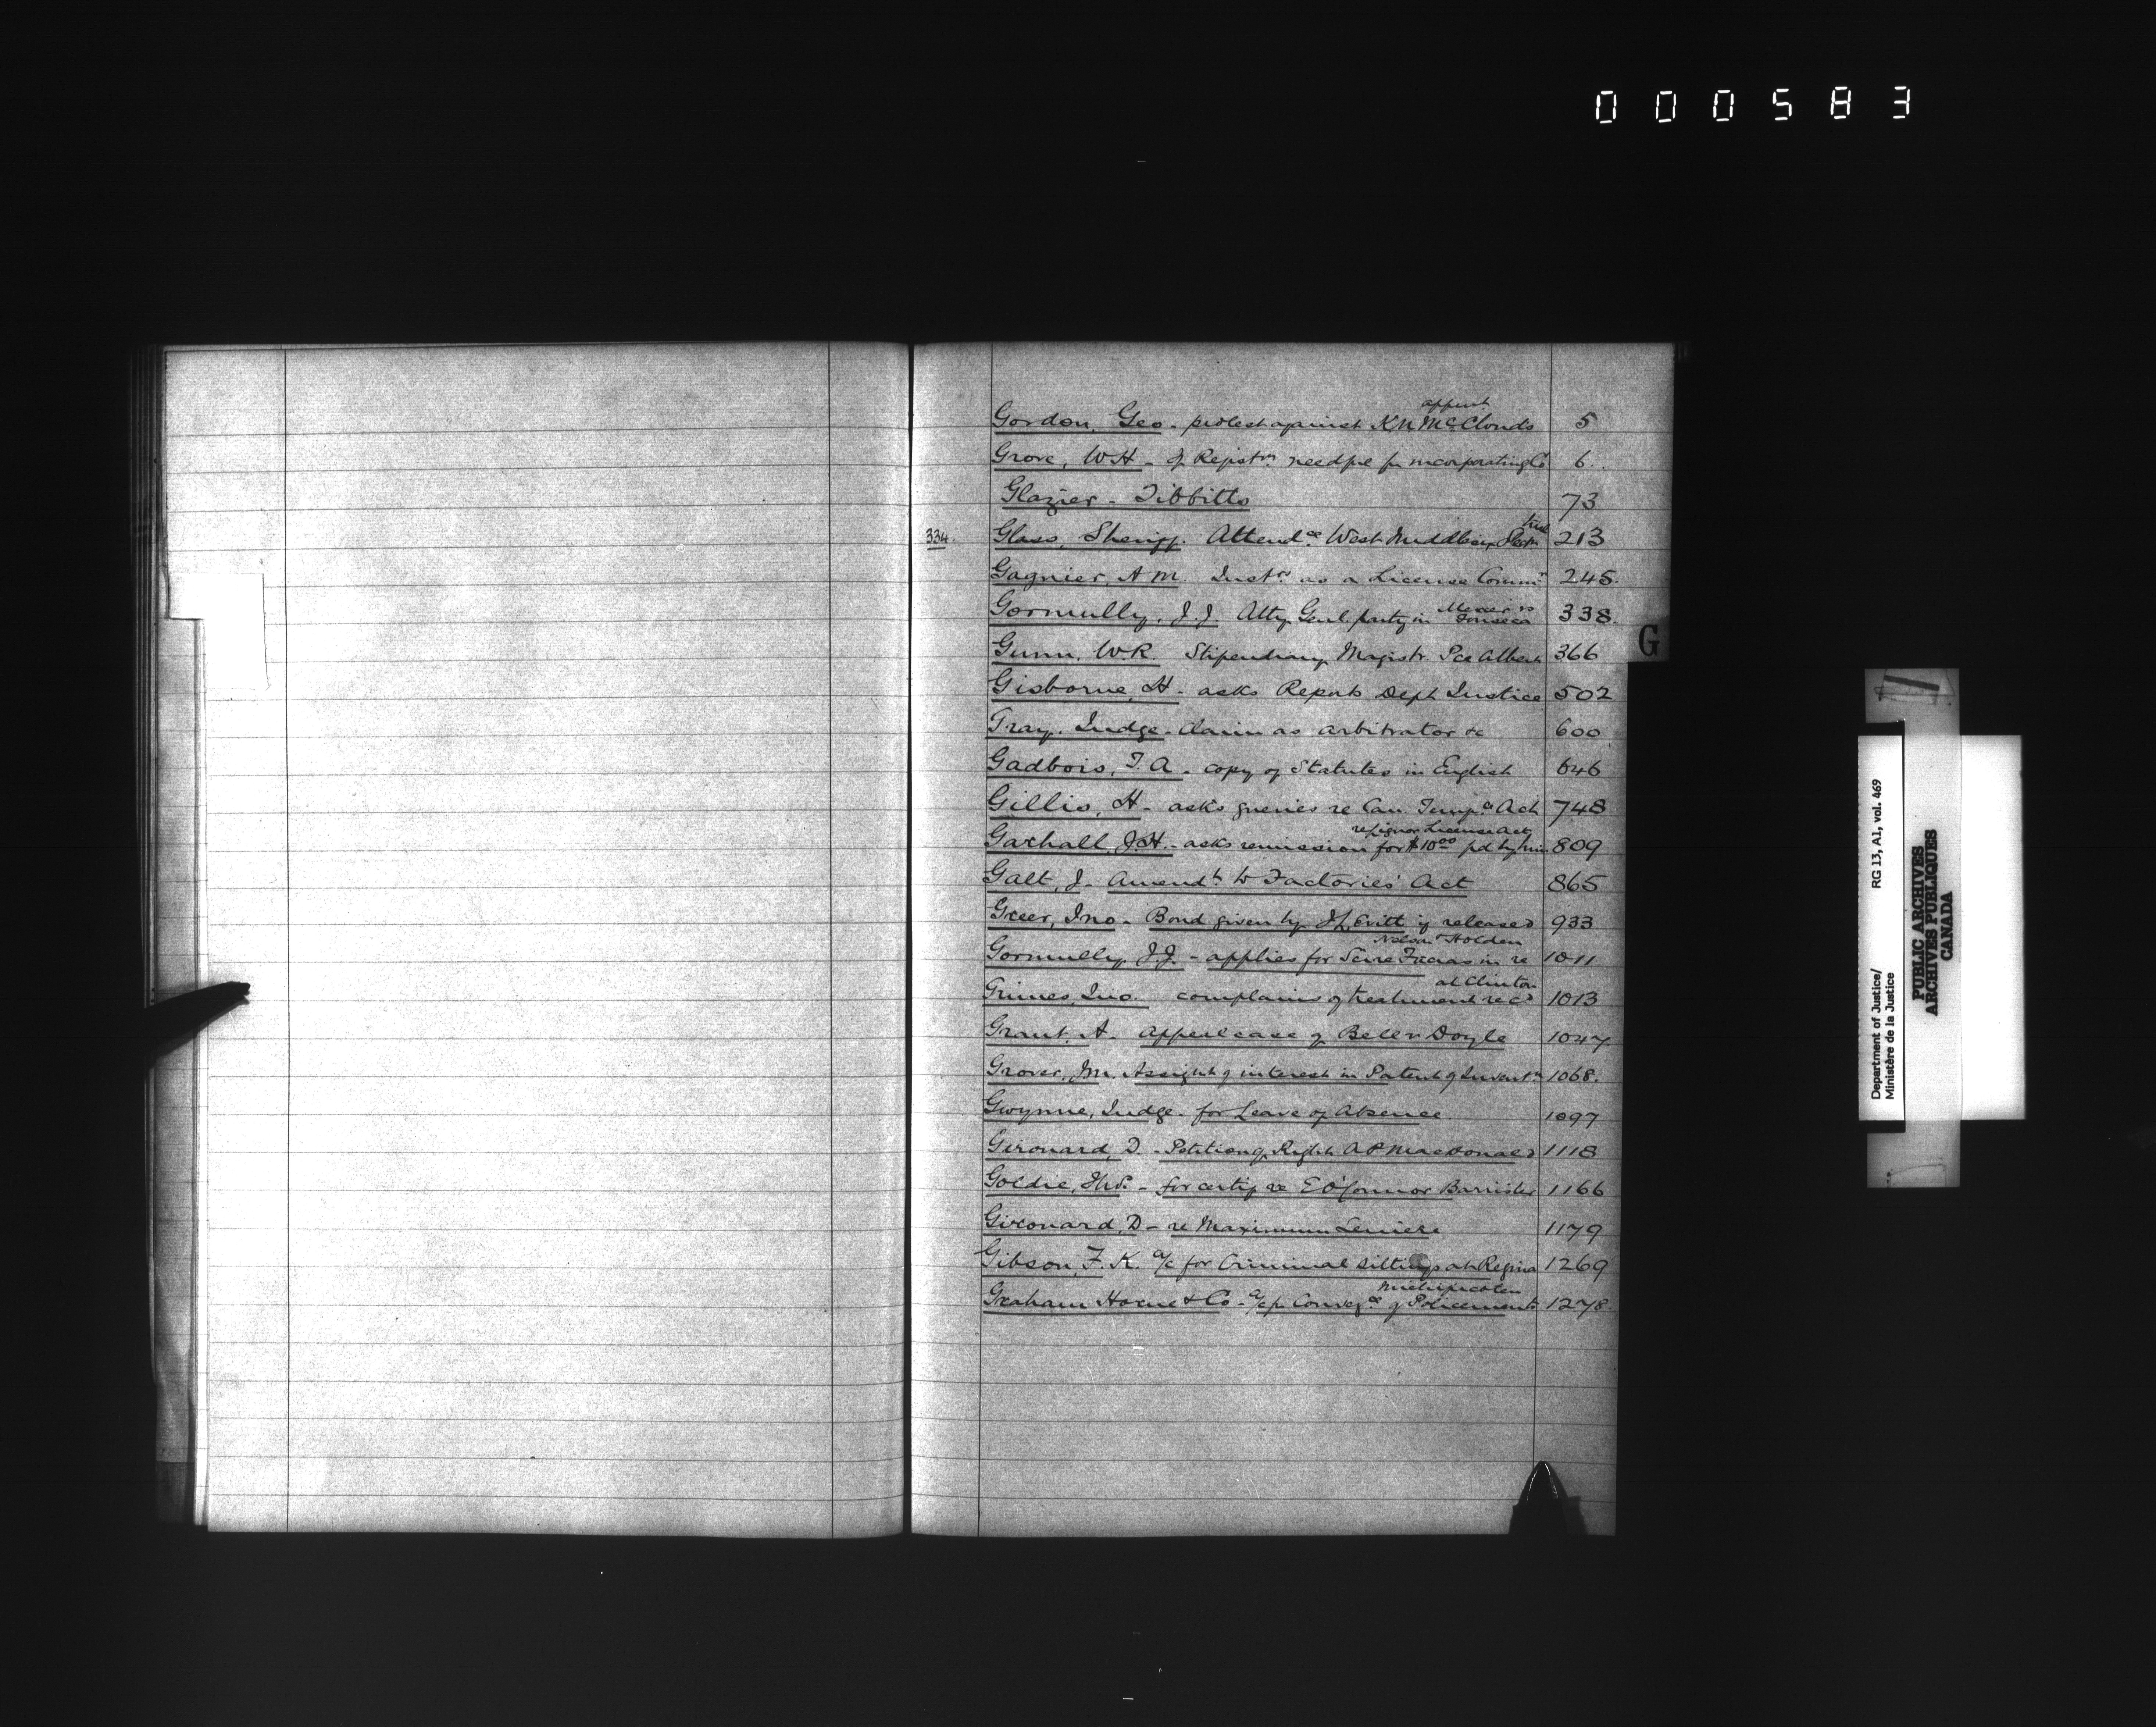 000583
appnt
Gordon, Geo - protest against K.N. McClouds 5
Grove, W H - if Registrn needful for incorporating Co 6
Glazier - Tibbitts 73
334 Glass, Sheriff. Attendce West Middlesex 213
Gagnier, A M. Instrs as a License Commr 245
Gormully, J. J. Atty Genl. party in Mercer vs Fonseca 338
Gunn, W. R Stipendiary Magistr. Pce Albert 366
Gisborne, H - asks Reports Dept Justice 502
Gray, Judge - Claim as arbitrator &c 600
Gadbois, T. A. - copy of Statutes in English 646
Gillis, H - asks queries re Can. Tempce Act 748
re Liquor License Act
Garhall, J. H. - asks remission for $10.00 pd by him 809
Galt, J - Amendt to Factories' Act 865
Greer, Jno - Bond given by J L Evitt if released 933
Nelson Holden
Gormully, J J. - applies for Scire Facias in re 1011
at Clinton
Grimes, Jno. complains of treatment recd 1013
Grant, A. Appeal case of Bell v Doyle 1047
Grover, Jm. Assignt of interest in Patent of Inventn 1068.
Gwynne, Judge - for Leave of Absence 1097
Girouard, D - Petition of Right A P MacDonald 1118
Goldie, - for certif re E O'Connor Barrister 1166
Girouard, D - re Maximum 1179
Gibson, F. K. a/c for Criminal sittings at Regina 1269
Michipicoten
Graham Horne & Co - a/c for Conveyce of Policemen to 1278.
G
Department of Justice/ RG 13, A1, vol. 469
Ministère de la Justice
PUBLIC ARCHIVES
ARCHIVES PUBLIQUES
CANADA